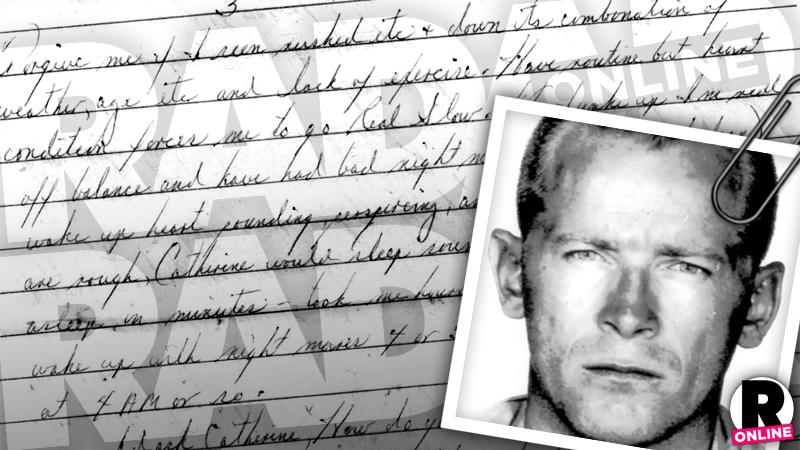 3
Forgive me if I seem rushed etc & down its combonation of
weather, age etc and lack of exercise. Have routine but heart
condition forces me to go Real Slow. up I'm real
off balance and have had bad night
wake up heart pounding, perspiring, as
are rough, Catherine would sleep
asleep in minutes - took me hours
wake up with night mares 4 or
at 4 AM or so.
I ask Catherine "How do y
RADAR ONLINE
RADAR
R
ONLINE